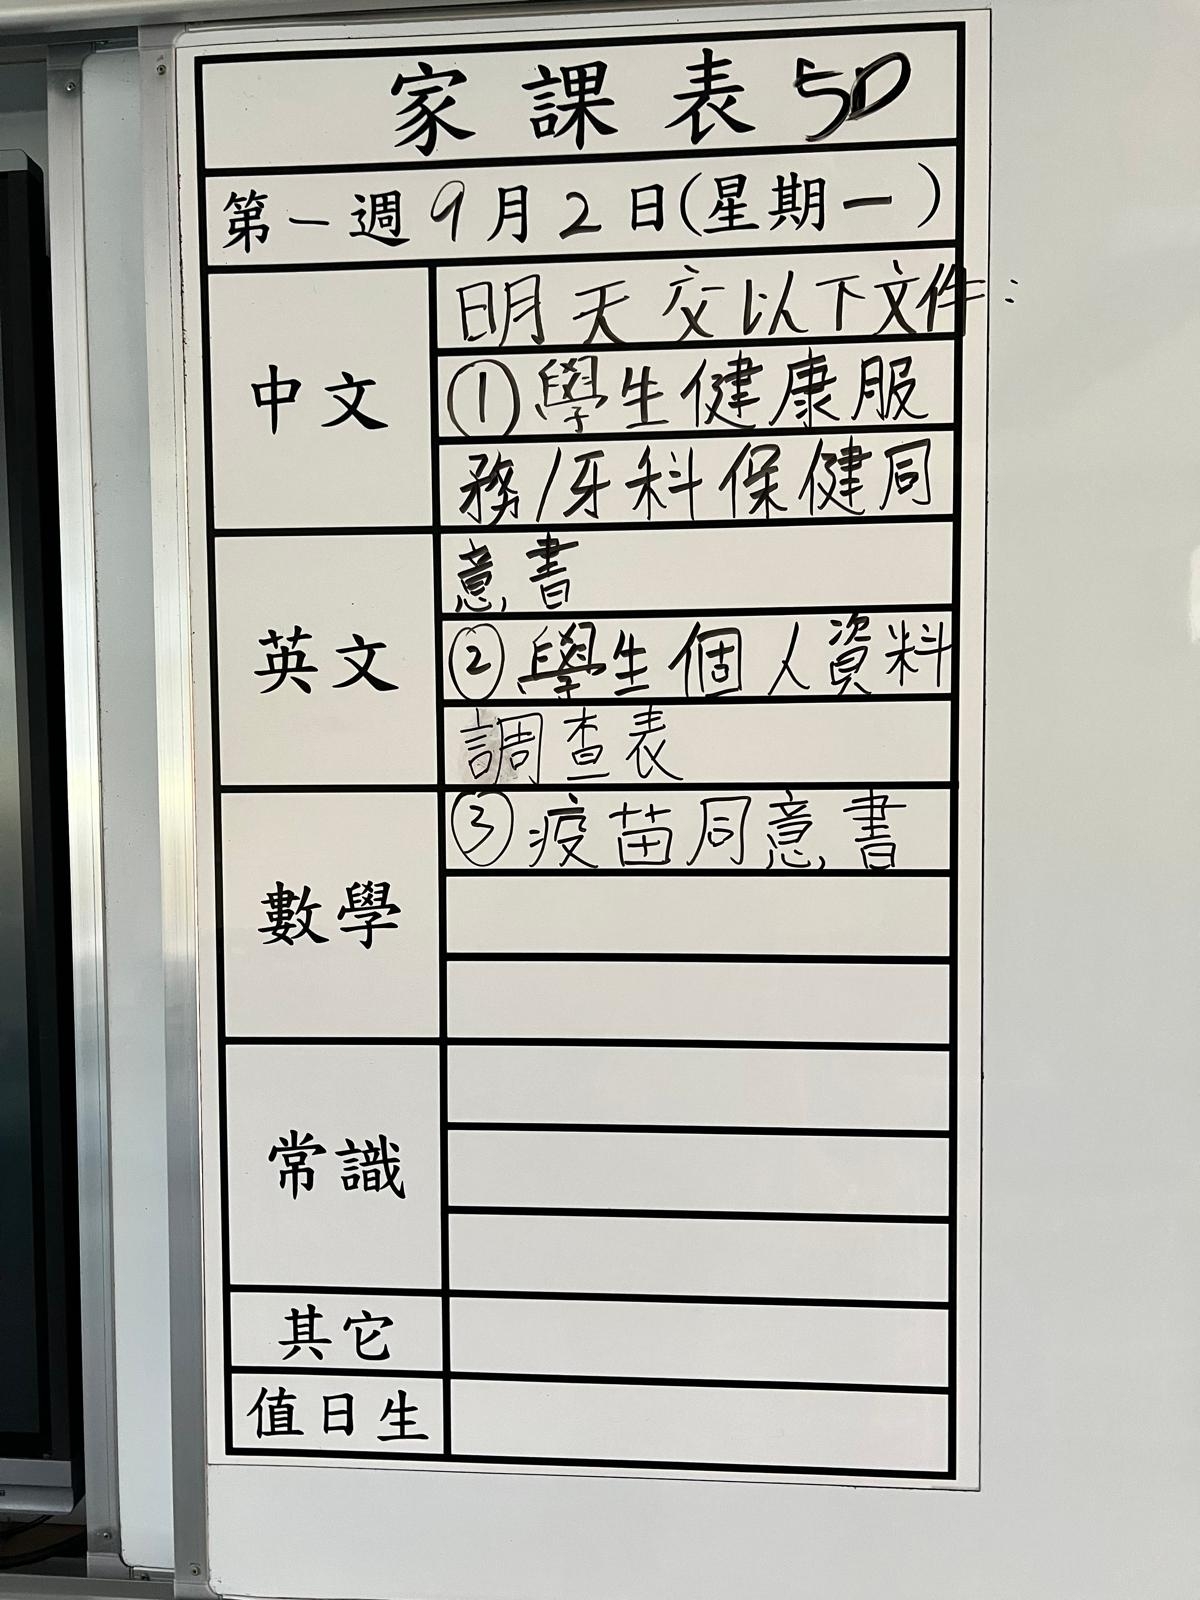 家課表 5D
第一週9月2日(星期一)
中文
明天交以下文件:
①學生健康服
務/牙科保健同
英文
意書
②學生個人資料
調查表
數學
③疫苗同意書
常識
其它
值日生